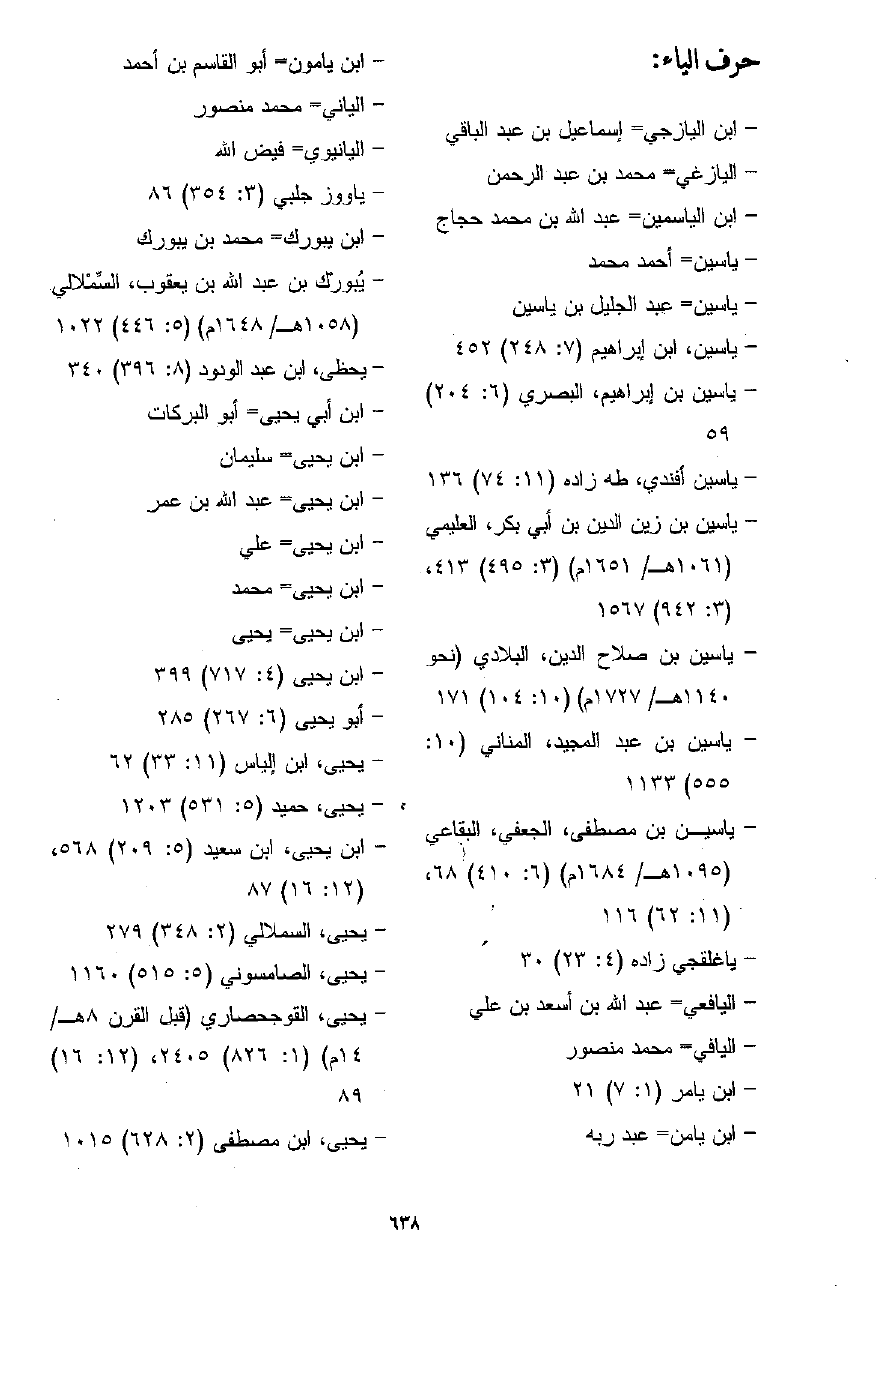 حرف الياء:
- ابن اليازجي= إسماعيل بن عبد الباقي
- اليازغي= محمد بن عبد الرحمن
- ابن الياسمين= عبد الله بن محمد حجاج
- ياسين= أحمد محمد
- ياسين= عبد الجليل بن ياسين
- ياسين، ابن إبراهيم (٧: ٢٤٨) ٤٥٢
- ياسين بن إبراهيم، البصري (٦: ٢٠٤)
٥٩
- ياسين أفندي، طه زاده (١١: ٧٤) ١٣٦
- ياسين بن زين الدين بن أبي بكر، العليمي
(١٠٦١هـ/ ١٦٥١م) (٣: ٤٩٥) ٤١٣،
(٣: ٩٤٢) ١٥٦٧
- ياسين بن صلاح الدين، البلادي (نحو
١١٤٠هـ/ ١٧٢٧م) (١٠: ١٠٤) ١٧١
- ياسين بن عبد المجيد، المناني (١٠:
٥٥٥) ١١٣٣
- ياسين بن مصطفى، الجعفي، البقاعي
(١٠٩٥هـ/ ١٦٨٤م) (٦: ٤١٠) ٦٨،
(١١: ٦٢) ١١٦
- ياغلقجي زاده (٤: ٢٣) ٣٠
- اليافعي= عبد الله بن أسعد بن علي
- اليافي= محمد منصور
- ابن يامر (١: ٧) ٢١
- ابن يامن= عبد ربه
- ابن يامون= أبو القاسم بن أحمد
- الياني= محمد منصور
- اليانيوي= فيض الله
- ياووز جلبي (٣: ٣٥٤) ٨٦
- ابن يبورك= محمد بن يبورك
- يُبورك بن عبد الله بن يعقوب، السِّمْلالي
(١٠٥٨هـ/ ١٦٤٨م) (٥: ٤٤٦) ١٠٢٢
- يحظى، ابن عبد الودود (٨: ٣٩٦) ٣٤٠
- ابن أبي يحيى= أبو البركات
- ابن يحيى= سليمان
- ابن يحيى= عبد الله بن عمر
- ابن يحيى= علي
- ابن يحيى= محمد
- ابن يحيى= يحيى
- ابن يحيى (٤: ٧١٧) ٣٩٩
- أبو يحيى (٦: ٢٦٧) ٢٨٥
- يحيى، ابن إلياس (١١: ٣٣) ٦٢
- يحيى، حميد (٥: ٥٣١) ١٢٠٣
- ابن يحيى، ابن سعيد (٥: ٢٠٩) ٥٦٨،
(١٢: ١٦) ٨٧
- يحيى، السملالي (٢: ٣٤٨) ٢٧٩
- يحيى، الصامسوني (٥: ٥١٥) ١١٦٠
- يحيى، القوجحصاري (قبل القرن ٨هـ/
١٤م) (١: ٨٢٦) ٢٤٠٥، (١٢: ١٦)
٨٩
- يحيى، ابن مصطفى (٢: ٦٢٨) ١٠١٥
٦٣٨